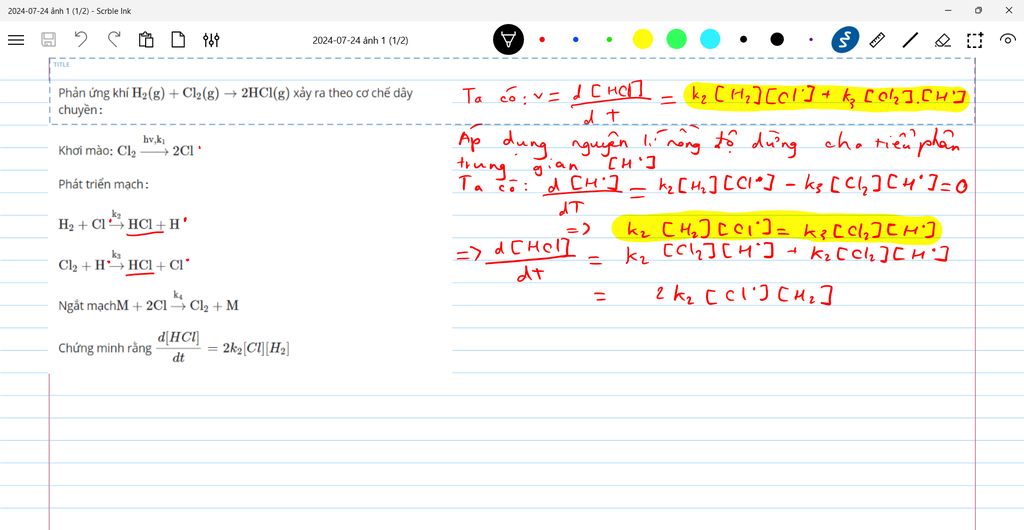 2024-07-24 ảnh 1 (1/2) - Scrble Ink
2024-07-24 ảnh 1 (1/2)
TITLE
Phản ứng khí H₂(g) + Cl₂(g) → 2HCl(g) xảy ra theo cơ chế dây
chuyền:
Khơi mào: Cl₂ —hν,k₁→ 2Cl•
Phát triển mạch:
H₂ + Cl• —k₂→ HCl + H•
Cl₂ + H• —k₃→ HCl + Cl•
Ngắt mạchM + 2Cl —k₄→ Cl₂ + M
Chứng minh rằng d[HCl]/dt = 2k₂[Cl][H₂]
Ta có: v = d[HCl]/dt = k₂[H₂][Cl•] + k₃[Cl₂].[H•]
Áp dụng nguyên lí nồng độ dừng cho tiểu phân
trung gian [H•]
Ta có: d[H•]/dT = k₂[H₂][Cl•] - k₃[Cl₂][H•] = 0
=> k₂[H₂][Cl•] = k₃[Cl₂][H•]
=> d[HCl]/dt = k₂[Cl₂][H•] + k₂[Cl₂][H•]
= 2k₂[Cl•][H₂]